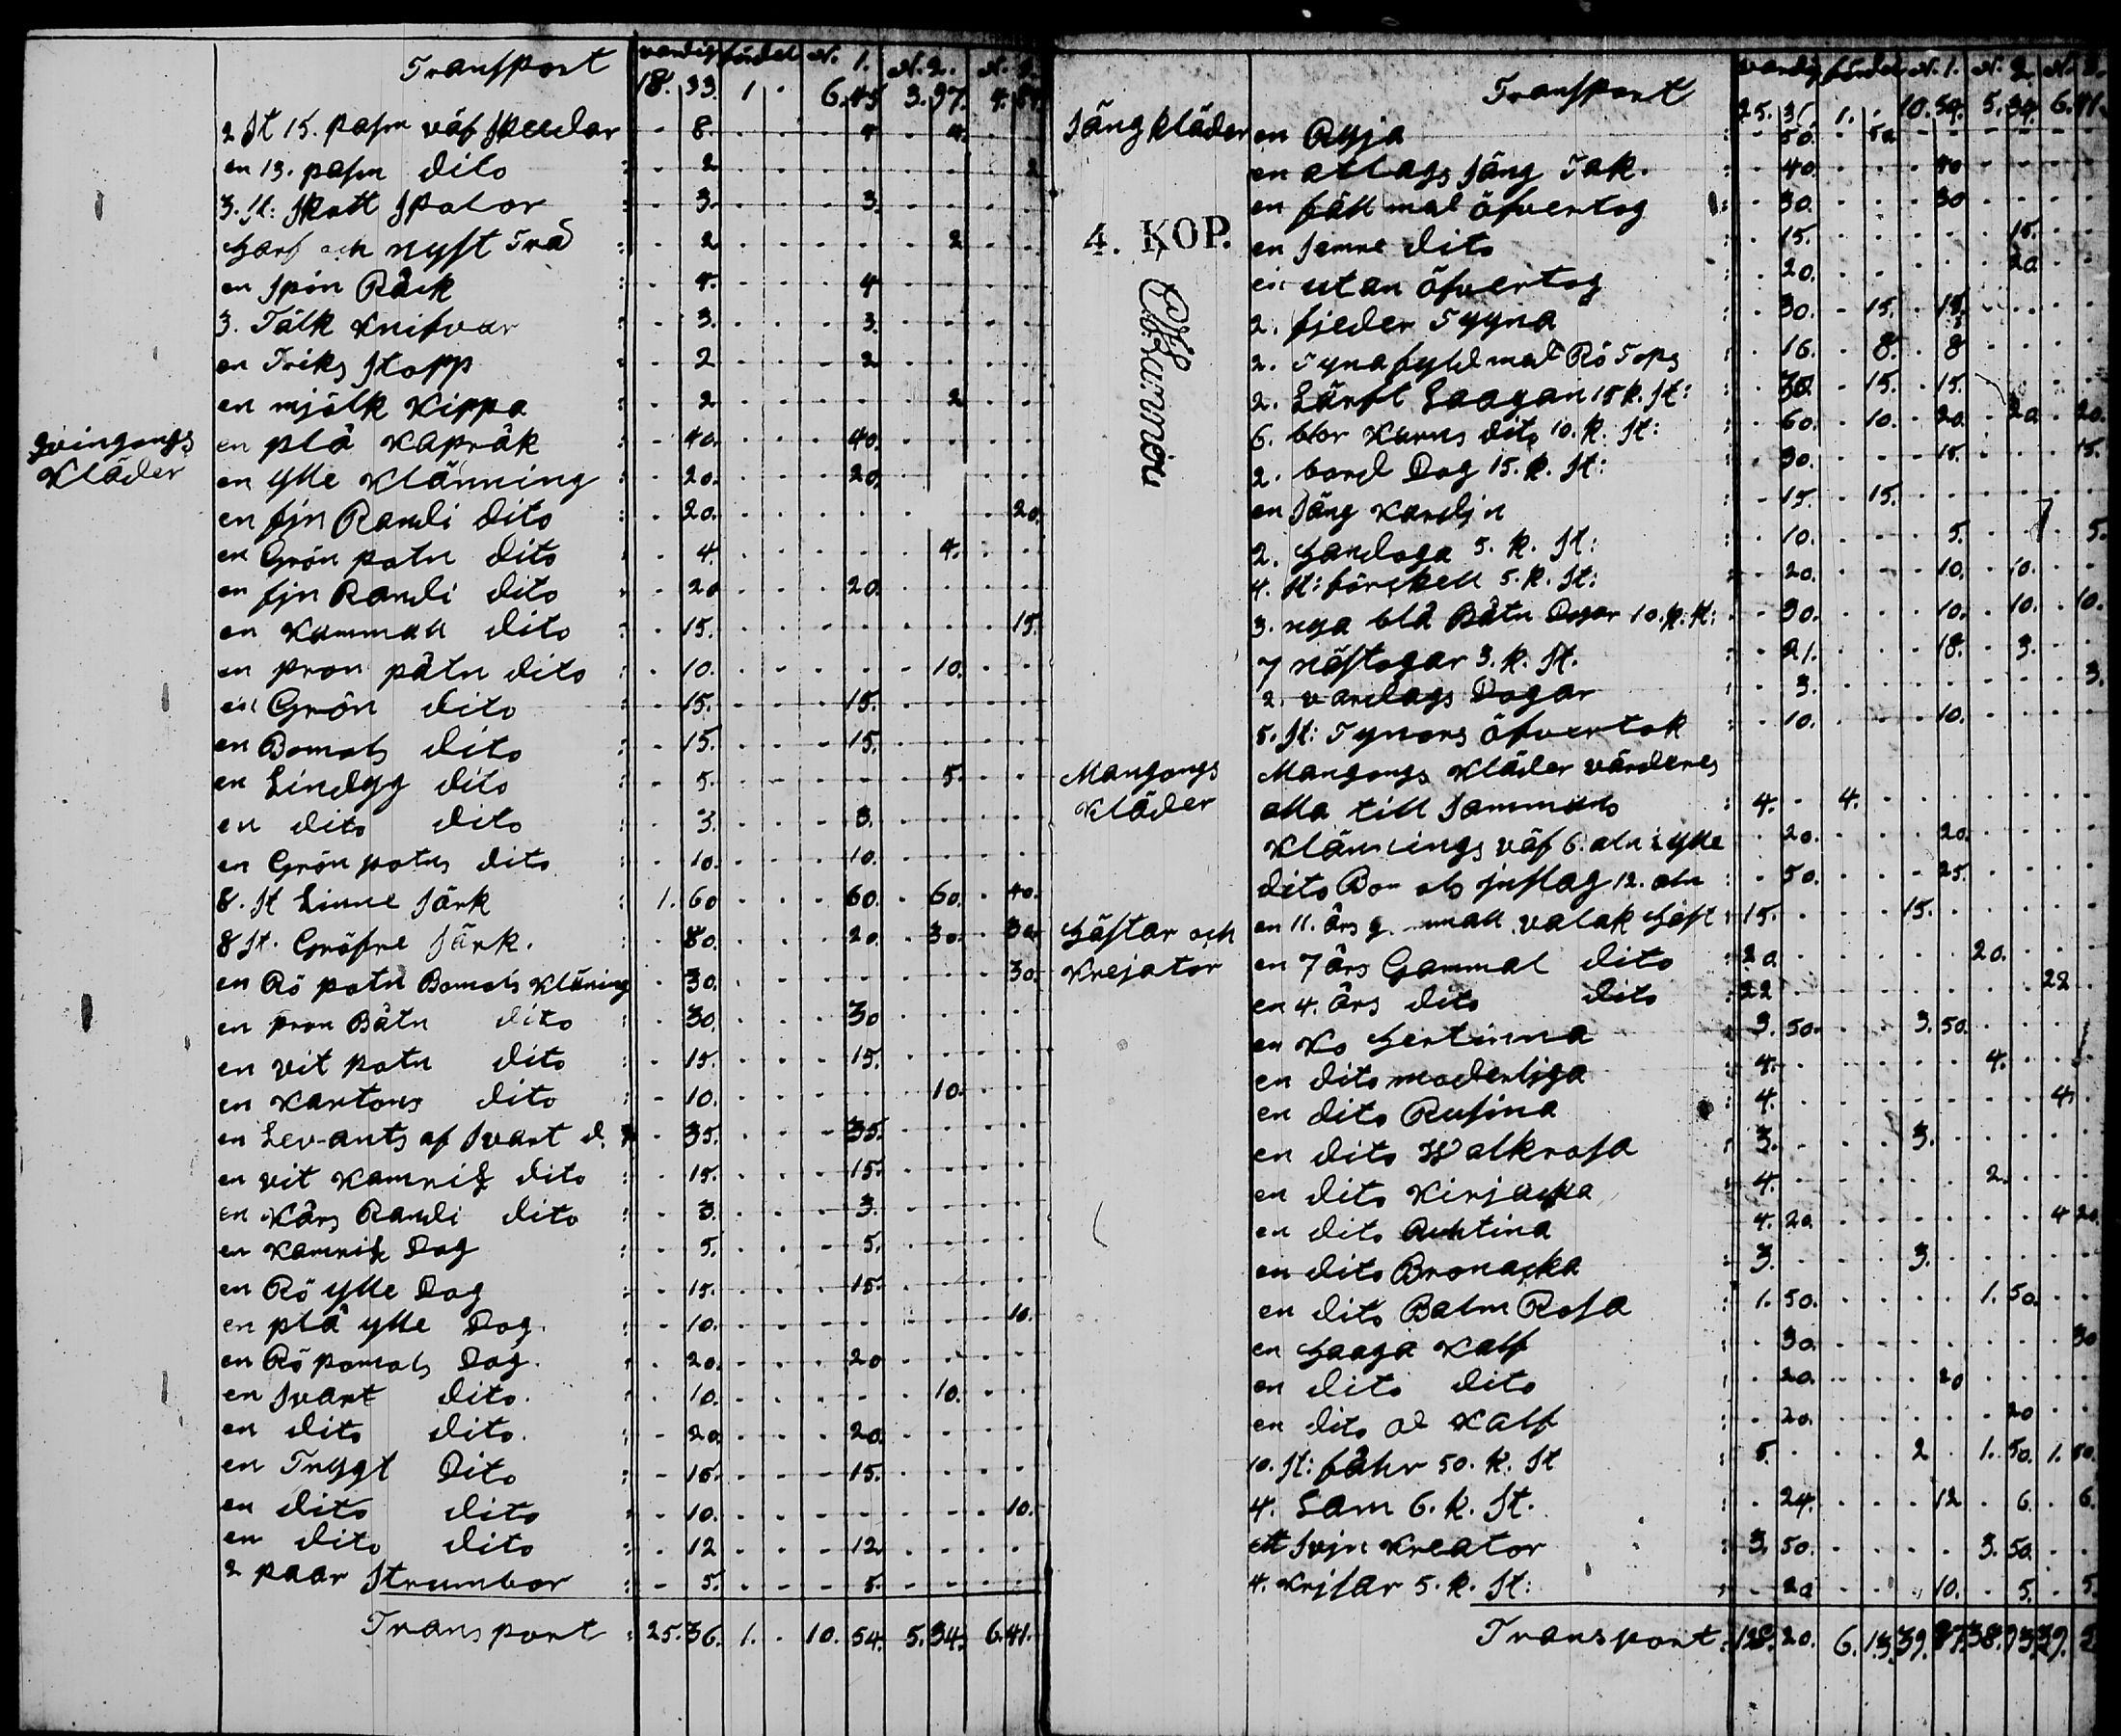 Transport värdig fördel N. 1. N. 2. N. 3.
18. 33. 1 . 6. 45 3. 97. 4.
2 St 15. pasm väf Skeedar - 8. 4 4.
en 13. pasm dito - 2 2
3. St: Skott Spolor - 3. 3.
Harf och nyst Trä - 2 2
en Spin Räck - 4. 4
3. Tälk Knifvar - 3. 3.
en Triks Stopp - 2 2
en mjölk Kippa - 2 2
qvingangs Kläder
en plå Kapråk - 40. 40.
en ylle Klänning - 20. 20.
en fjn Randi dito - 20. 20.
en Grön potn dito - 4. 4.
en fjn Randi dito - 20 20.
en Kammall dito - 15. 15.
en pron påtn dito - 10. 10.
en Grön dito - 15. 15.
en Bomols dito - 15. 15.
en Lindgg dito - 5. 5.
en dito dito - 3. 3.
en Grön potns dito - 10. 10.
8. St Linne Särk 1. 60 60. 60. 40.
8 St. Gröfre Särk. - 80. 20. 30. 30.
en Rö potn Bomols Kläning - 30. 30.
en pron Båtn dito - 30. 30
en vit potn dito - 15. 15.
en Kartons dito - 10. 10.
en Levants af Svart d. - 35. 35.
en vit Kamrik dito - 15. 15.
en Kårs Randi dito - 3. 3.
en Kamrik Dog - 5. 5.
en Rö ylle Dog - 15. 15.
en plå ylle Dog. - 10. 10.
en Rö pomols Dog. - 20. 20
en Svart dito. - 10. 10.
en dito dito. - 20. 20.
en Trygt Dito - 15. 15.
en dito dito - 10. 10.
en dito dito - 12 12.
2 paar Strumbor - 5. 5.
Transport : 25. 36. 1. . 10. 54. 5. 34. 6. 41.
Transport värdig fördel N. 1. N. 2. N. 3.
25. 36. 1. . 10. 54. 5. 34. 6. 41.
Sängkläder en Ryja - 50. 50
en allags Säng Tak. - 40. 40
en fäll mad öfvertog - 30. 30
4. KOP.
en Semre dito - 15. 15.
en utan öfvertog - 20. 20
2. fjeder Tyyna - 30. 15. 15.
2. Tyna fyld mad Rö Tops - 16. 8. 8
2. Lärft Laagan 15 k. St: - 30 15. 15.
6. blor Karns dito 10. k. St: - 60. 10. 20. 20 20.
2. bord Dog 15. k. St: - 30. 15. 15.
en Säng Kardjn - 15. 15.
2. Handoga 5. k. St: - 10. 5. 5.
4. St: förskell 5. k. St: - 20. 10. 10.
3. nya blå Båtn Dogar 10. k. St: - 30. 10. 10. 10.
7 nästogar 3. k. St. - 21. 18. 3.
2. vardags Dogar - 3. 3.
5. St: Tynors öfvertok - 10. 10.
Mangongs Kläder
Mangongs Kläder värderes
alla till Sammans : 4. - 4.
Klännings väf 6. aln i ylle - 20. 20.
dito Bomols jnslag 12. aln - 50. 25.
Hästar och Krejator
en 11. års gammall valak Häst : 15. 15.
en 7 års Gammal dito : 20 20.
en 4. års dito dito : 22 22
en Ko Hertinna 3. 50. 3. 50.
en dito moderliga 4. 4.
en dito Rusina 4. 4.
en dito Walkrosa 3. 3.
en dito Kirjacka 4. 2.
en dito Auhtina 4. 20. 4 20.
en dito Bronacka 3. 3.
en dito Balm Rosa 1. 50. 1. 50.
en Haaga Kalf - 30. 30
en dito dito - 20. 20
en dito od Kalf - 20. 20
10. St: fåhr 50. k. St : 5. 2 1. 50. 1. 50.
4. Lam 6. k. St. - 24. 12 6. 6.
ett Svjn Kreator : 3. 50. 3. 50.
4. Krjsar 5. k. St: - 20 10. 5. 5.
Transport: 128. 20. 6. 13. 39. 87. 38. 93. 39.